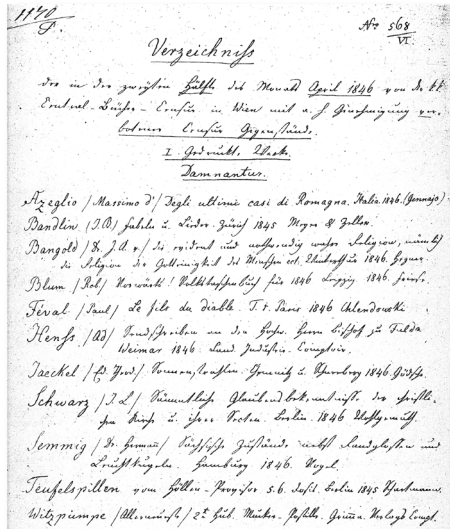 1170
P.
No 568
VI.
Verzeichniß
der in der zweyten Hälfte des Monats April 1846 von der k.k.
Central-Bücher-Censur in Wien mit a. h. Genehmigung ver-
botenen Censur Gegenstände.
I. Gedruckte Werke.
Damnantur.
Azeglio /Massimo d'/ Degli ultimi casi di Romagna. Italia. 1846. (Gennajo)
Bandlin /J. B./ Fabeln u. Lieder. Zürich 1845 Meyer & Zeller.
Bangold /D. J. A. v./ die evident und nothwendig wahre Religion, nämlich
die Religion der Gotteinigkeit des Menschen ect. 1846.
Blum /Rob/ Vorwärts! Volkstaschenbuch für 1846 Leipzig 1846. Friese.
Féval /Paul/ Le fils du diable. T. 1. Paris 1846 Chlendowski.
Henss /Ad/ Sendschreiben an den Hochw. Herrn Bischof zu Fulda
Weimar 1846. Land. Industrie-Comptoir.
Jaeckel /Ed. Theod./ Sonnenstrahlen. Chemnitz u. Schneeberg 1846. Gödsche.
Schwarz /J. L./ Sämmtliche Glaubensbekenntnisse der christli-
chen Kirche u. ihrer Secten. Berlin. 1846 Wohlgemuth.
Semmig /Dr. Herman/ Sächsische Zustände nebst Randglossen und
Leuchtkugeln. Hamburg 1846. Vogel.
Teufelspillen vom Höllen-Provisor 5. 6. Dosis. Berlin 1845
Witzpumpe /Allerneueste/ 2t Hub. Grimma. Verlags Compt.